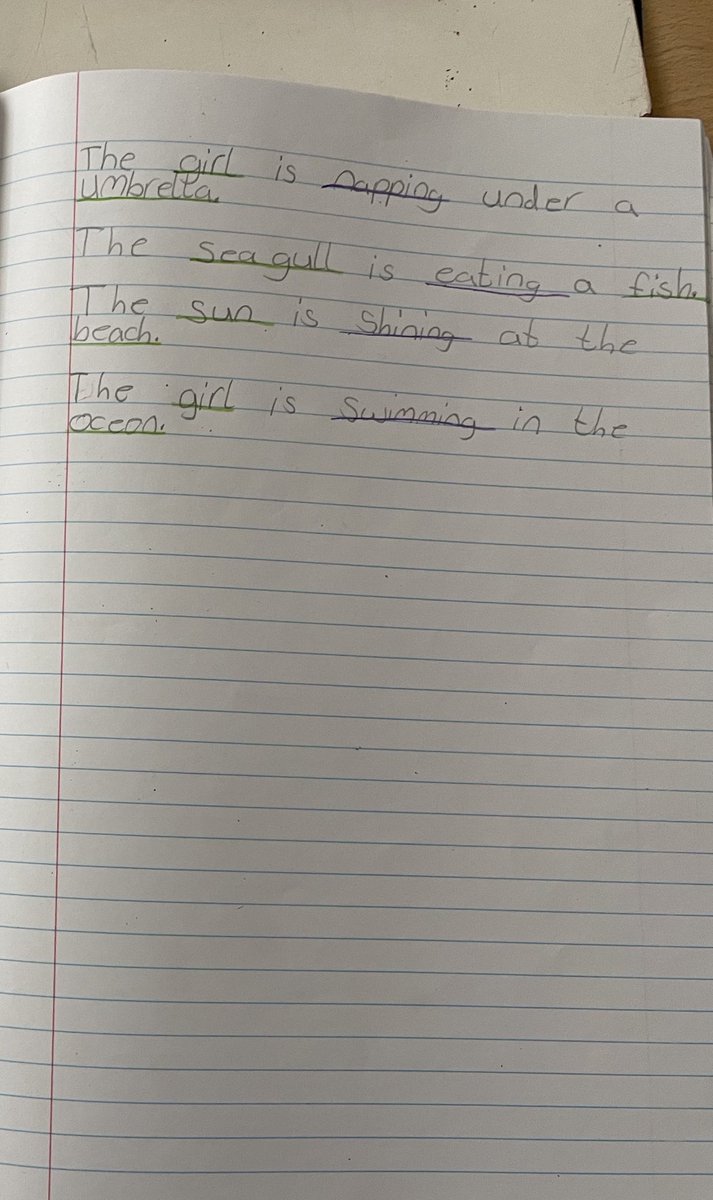 The girl is napping under a
umbrella.
The seagull is eating a fish.
The sun is shining at the
beach.
The girl is swimming in the
ocean.